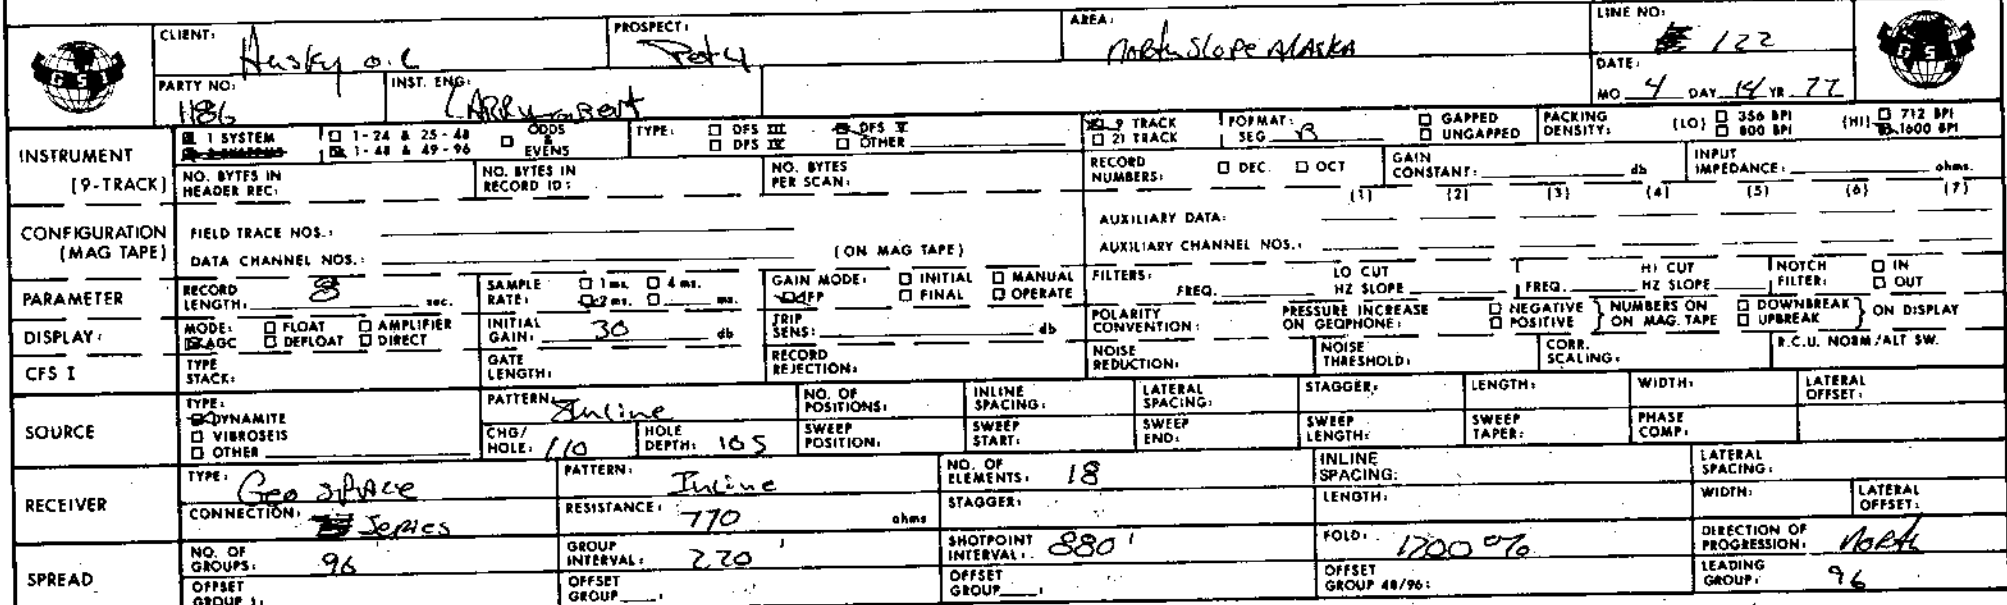 CLIENT: Husky oil PROSPECT: AREA: North Slope ALASKA LINE NO: 122
GSI
DATE:
MO 4 DAY 14 YR. 77
GSI
PARTY NO: 1186 INST. ENG: LARRY
INSTRUMENT
[9-TRACK]
1 SYSTEM 1-24 & 25-48 ODDS & EVENS TYPE: DFS III DFS V 9 TRACK FORMAT: SEG B GAPPED PACKING DENSITY: (LO) 356 BPI (HI) 712 BPI
1-48 & 49-96 DFS IV OTHER 21 TRACK UNGAPPED 800 BPI 1600 BPI
NO. BYTES IN HEADER REC: NO. BYTES IN RECORD ID: NO. BYTES PER SCAN: RECORD NUMBERS: DEC. OCT GAIN CONSTANT: db INPUT IMPEDANCE: ohms.
(1) (2) (3) (4) (5) (6) (7)
CONFIGURATION
(MAG TAPE)
FIELD TRACE NOS.: AUXILIARY DATA:
DATA CHANNEL NOS.: (ON MAG TAPE) AUXILIARY CHANNEL NOS.:
PARAMETER
RECORD LENGTH: 8 sec. SAMPLE RATE: 1 ms. 4 ms. 2 ms. ms. GAIN MODE: INITIAL MANUAL IFP FINAL OPERATE FILTERS: FREQ. LO CUT HZ SLOPE FREQ. HI CUT HZ SLOPE NOTCH FILTER: IN OUT
DISPLAY:
MODE: FLOAT AMPLIFIER AGC DEFLOAT DIRECT INITIAL GAIN: 30 db TRIP SENS: db POLARITY CONVENTION: PRESSURE INCREASE ON GEOPHONE: NEGATIVE POSITIVE NUMBERS ON ON MAG. TAPE DOWNBREAK UPBREAK ON DISPLAY
CFS I
TYPE STACK: GATE LENGTH: RECORD REJECTION: NOISE REDUCTION: NOISE THRESHOLD: CORR. SCALING: R.C.U. NORM/ALT SW.
SOURCE
TYPE: DYNAMITE VIBROSEIS OTHER PATTERN: Inline NO. OF POSITIONS: INLINE SPACING: LATERAL SPACING: STAGGER: LENGTH: WIDTH: LATERAL OFFSET:
CHG/HOLE: 110 HOLE DEPTH: 105 SWEEP POSITION: SWEEP START: SWEEP END: SWEEP LENGTH: SWEEP TAPER: PHASE COMP:
RECEIVER
TYPE: Geo SPACE PATTERN: Inline NO. OF ELEMENTS: 18 INLINE SPACING: LATERAL SPACING:
CONNECTION: Series RESISTANCE: 770 ohms STAGGER: LENGTH: WIDTH: LATERAL OFFSET:
SPREAD
NO. OF GROUPS: 96 GROUP INTERVAL: 220' SHOTPOINT INTERVAL: 880' FOLD: 1200% DIRECTION OF PROGRESSION: North
OFFSET GROUP 1: OFFSET GROUP : OFFSET GROUP : OFFSET GROUP 48/96: LEADING GROUP: 96